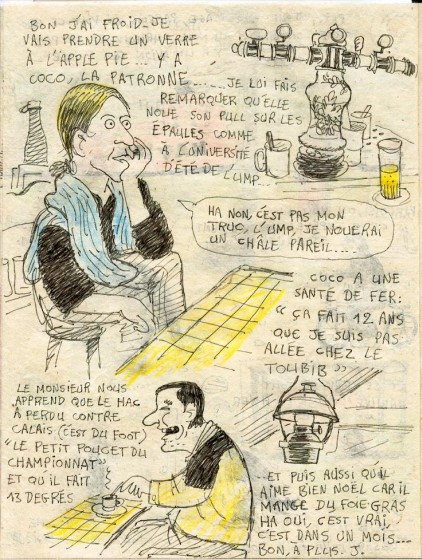 BON J'AI FROID_JE
VAIS PRENDRE UN VERRE
À L'APPLE PIE... Y A
COCO, LA PATRONNE......JE LUI FAIS
REMARQUER QU'ELLE
NOUE SON PULL SUR LES
ÉPAULES COMME
À L'UNIVERSITÉ
D'ÉTÉ DE L'UMP...
HA NON, C'EST PAS MON
TRUC, L'UMP, JE NOUERAI
UN CHÂLE PAREIL...
COCO A UNE
SANTÉ DE FER:
"ÇA FAIT 12 ANS
QUE JE SUIS PAS
ALLÉE CHEZ LE
TOUBIB"
LE MONSIEUR NOUS
APPREND QUE LE HAC
A PERDU CONTRE
CALAIS (C'EST DU FOOT)
"LE PETIT POUCET DU
CHAMPIONNAT"
ET QU'IL FAIT
13 DEGRÉS
...ET PUIS AUSSI QU'IL
AIME BIEN NOËL CAR IL
MANGE DU FOIE GRAS
HA OUI, C'EST VRAI,
C'EST DANS UN MOIS...
BON, A PLUS. J.